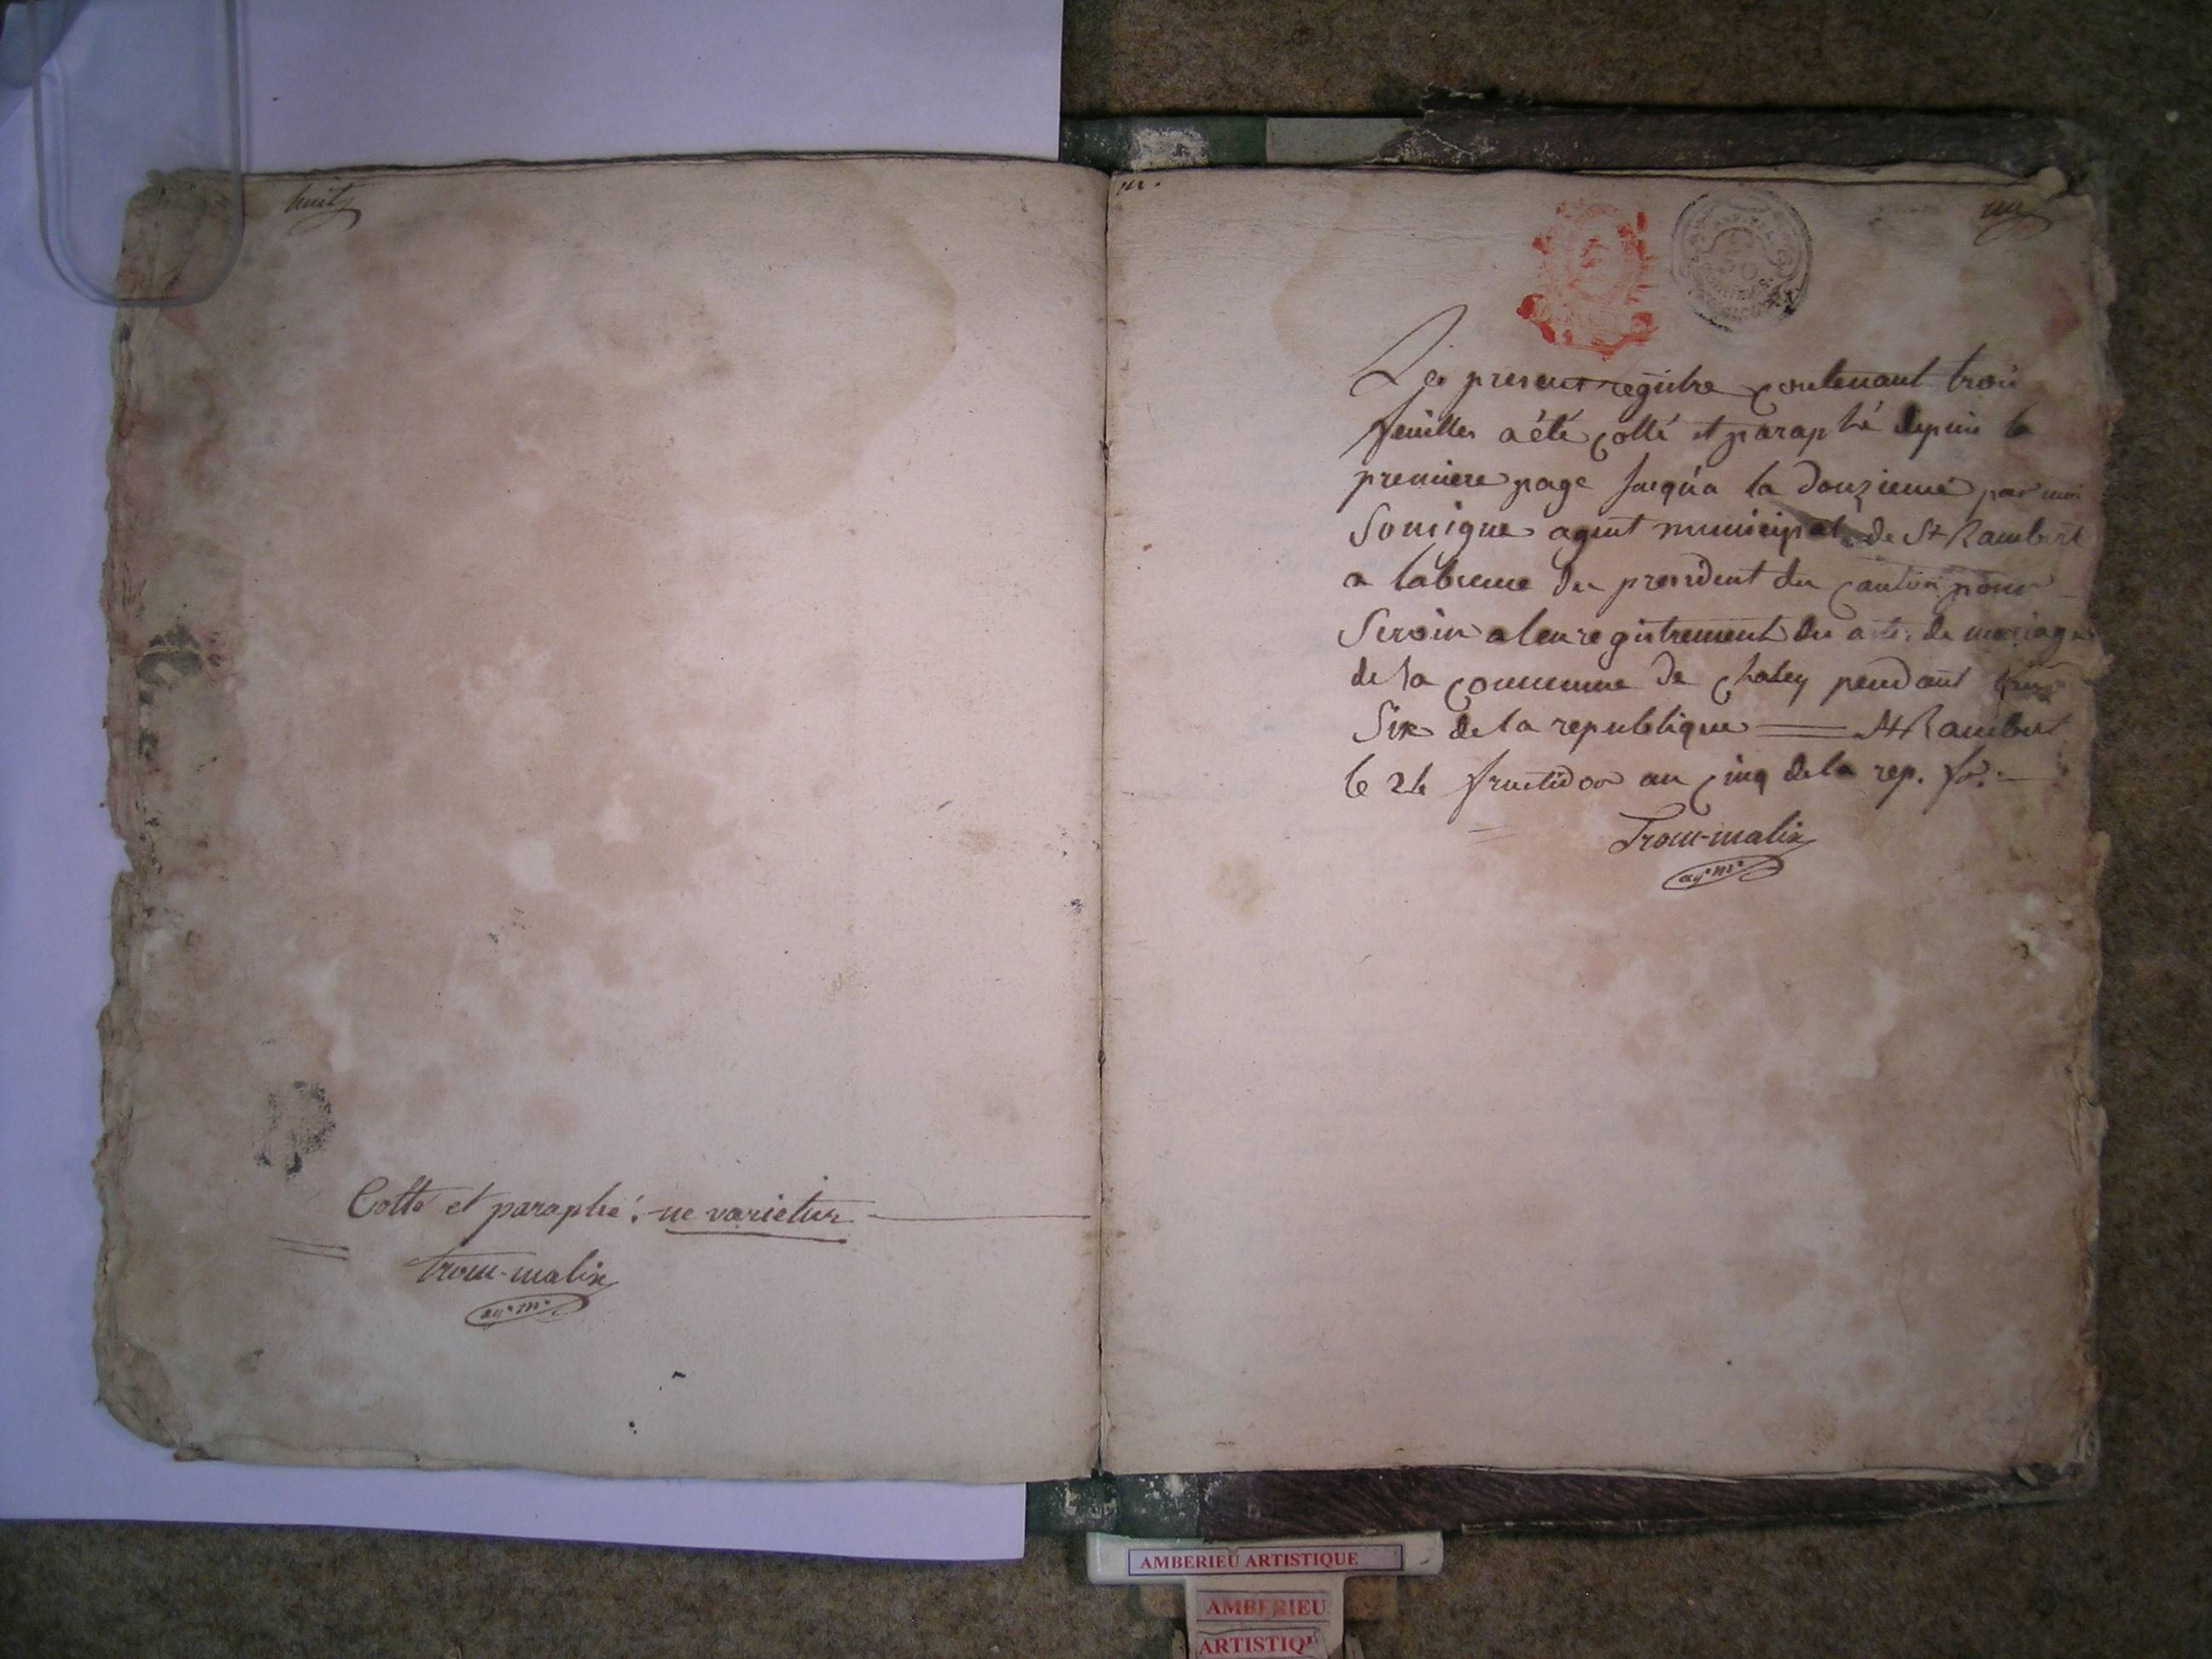 huit
Cotté et paraphé: ne varietur
trom-malix
ag. m.
un
Le present registre contenant trois
feuilles a été cotté et paraphé depuis la
premiere page jusqu'a la douzieme par moi
Soussigne agent municipal de St Rambert
a labsence du president du canton pour
Servir a lenregistrement des actes de mariage
de la commune de Chaley pendant
Six de la republique St Rambert
le 24 fructidor an cinq de la rep. fr.
Trom-malix
ag. m.
AMBERIEU ARTISTIQUE
AMBERIEU
ARTISTIQU